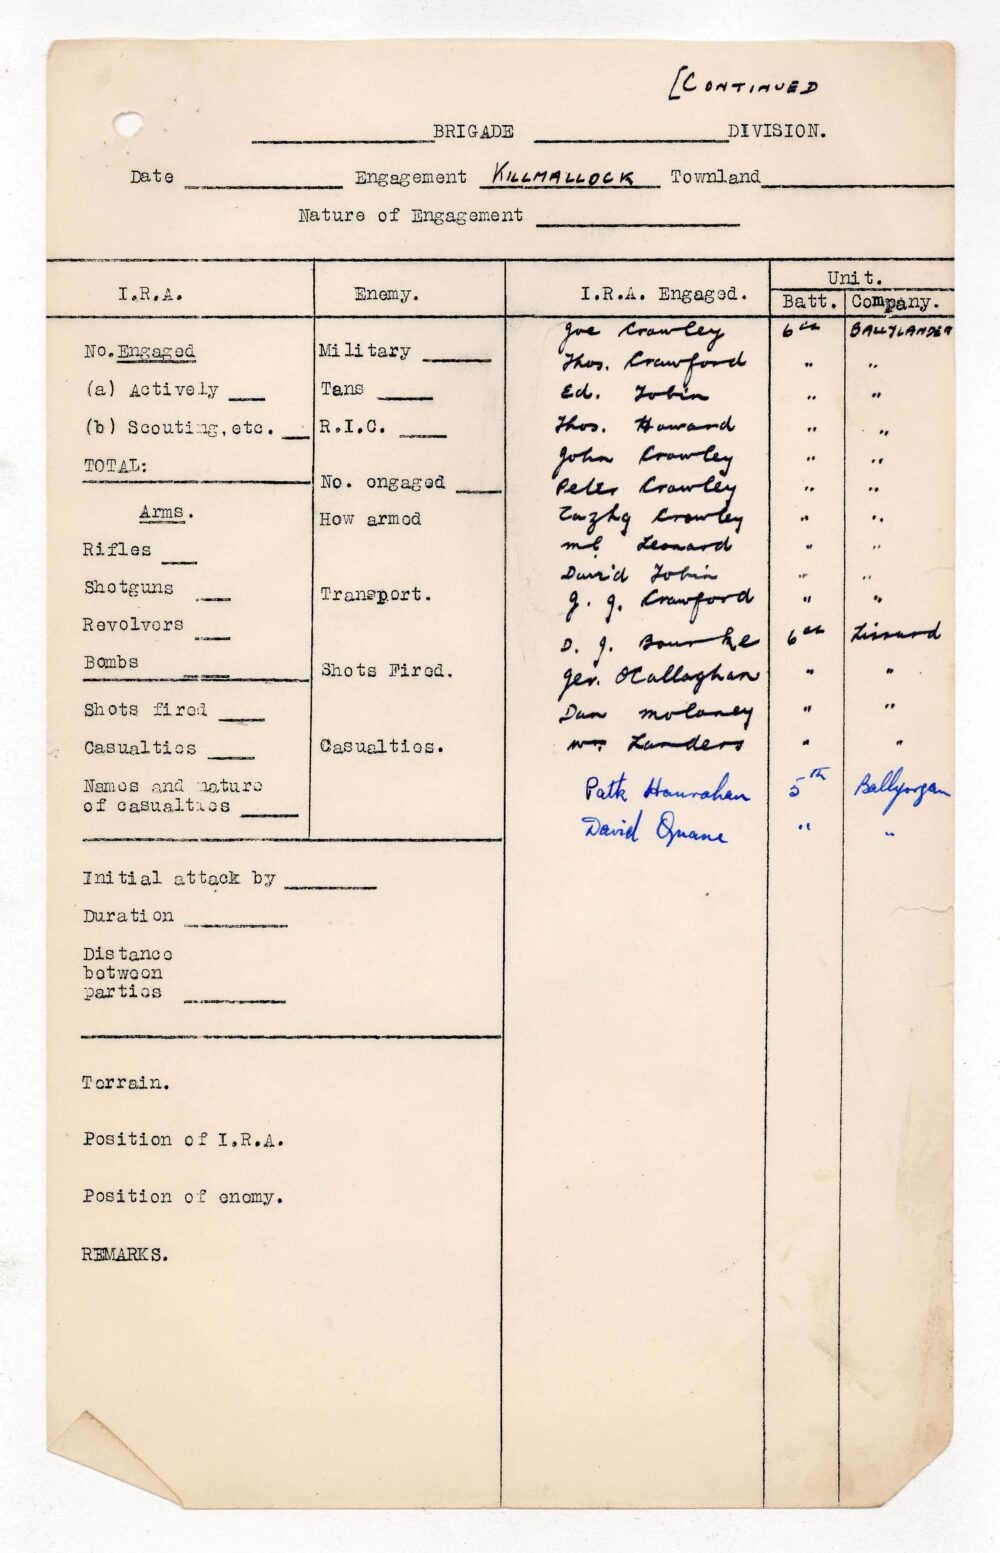 [CONTINUED
BRIGADE DIVISION.
Date Engagement KILLMALLOCK Townland
Nature of Engagement
I.R.A. Enemy. I.R.A. Engaged. Unit.
Batt. Company.
Joe Crawley 6th BALLYLANDER
No. Engaged Military Thos. Crawford " "
(a) Actively Tans Ed. Tobin " "
(b) Scouting, etc. R.I.C. Thos. Howard " "
TOTAL: John Crawley " "
No. engaged Peter Crawley " "
Arms. How armed Tazhg Crowley " "
Rifles Ml Leonard " "
David Tobin " "
Shotguns Transport. J. J. Crawford " "
Revolvers D. J. Bourke 6th Lissard
Bombs Shots Fired. Ger. O'Callaghan " "
Shots fired Dan Molaney " "
Casualties Casualties. Wm. Landers " "
Names and nature Patk Hanrahan 5th Ballyorgan
of casualties
David Quane " "
Initial attack by
Duration
Distance
between
parties
Terrain.
Position of I.R.A.
Position of enemy.
REMARKS.